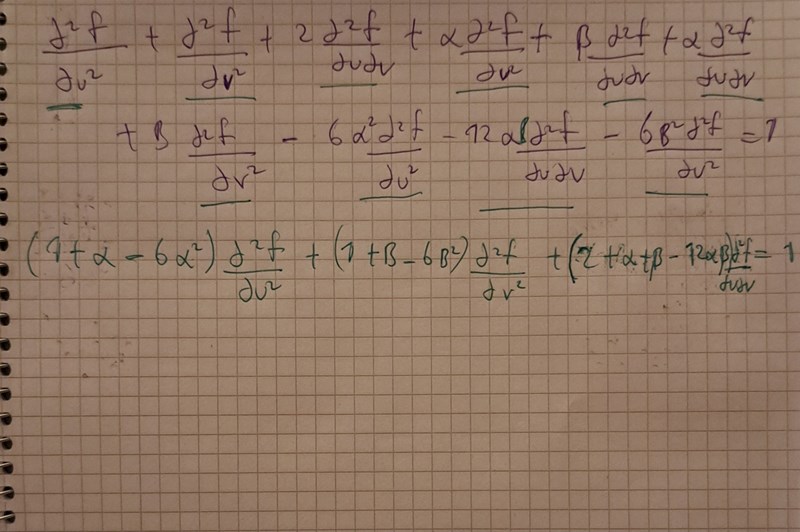 ∂²f/∂u² + ∂²f/∂v² + 2 ∂²f/∂u∂v + α ∂²f/∂v² + β ∂²f/∂u∂v + α ∂²f/∂u∂v
+ β ∂²f/∂v² - 6α² ∂²f/∂u² - 12αβ ∂²f/∂u∂v - 6β² ∂²f/∂v² = 1
(1 + α - 6α²) ∂²f/∂u² + (1 + β - 6β²) ∂²f/∂v² + (2 + α + β - 12αβ) ∂²f/∂u∂v = 1